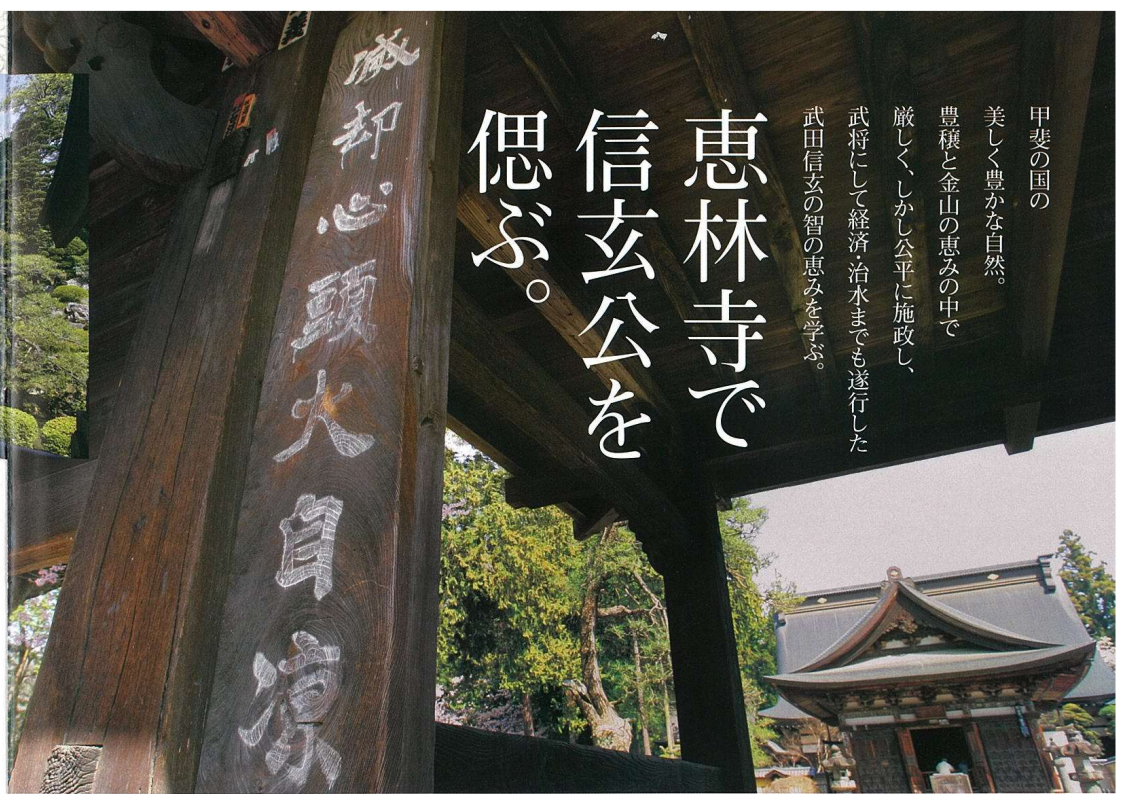 甲斐の国の
美しく豊かな自然。
豊穣と金山の恵みの中で
厳しく、しかし公平に施政し、
武将にして経済・治水までも遂行した
武田信玄の智の恵みを学ぶ。
恵林寺で
信玄公を
偲ぶ。
滅却心頭火自涼